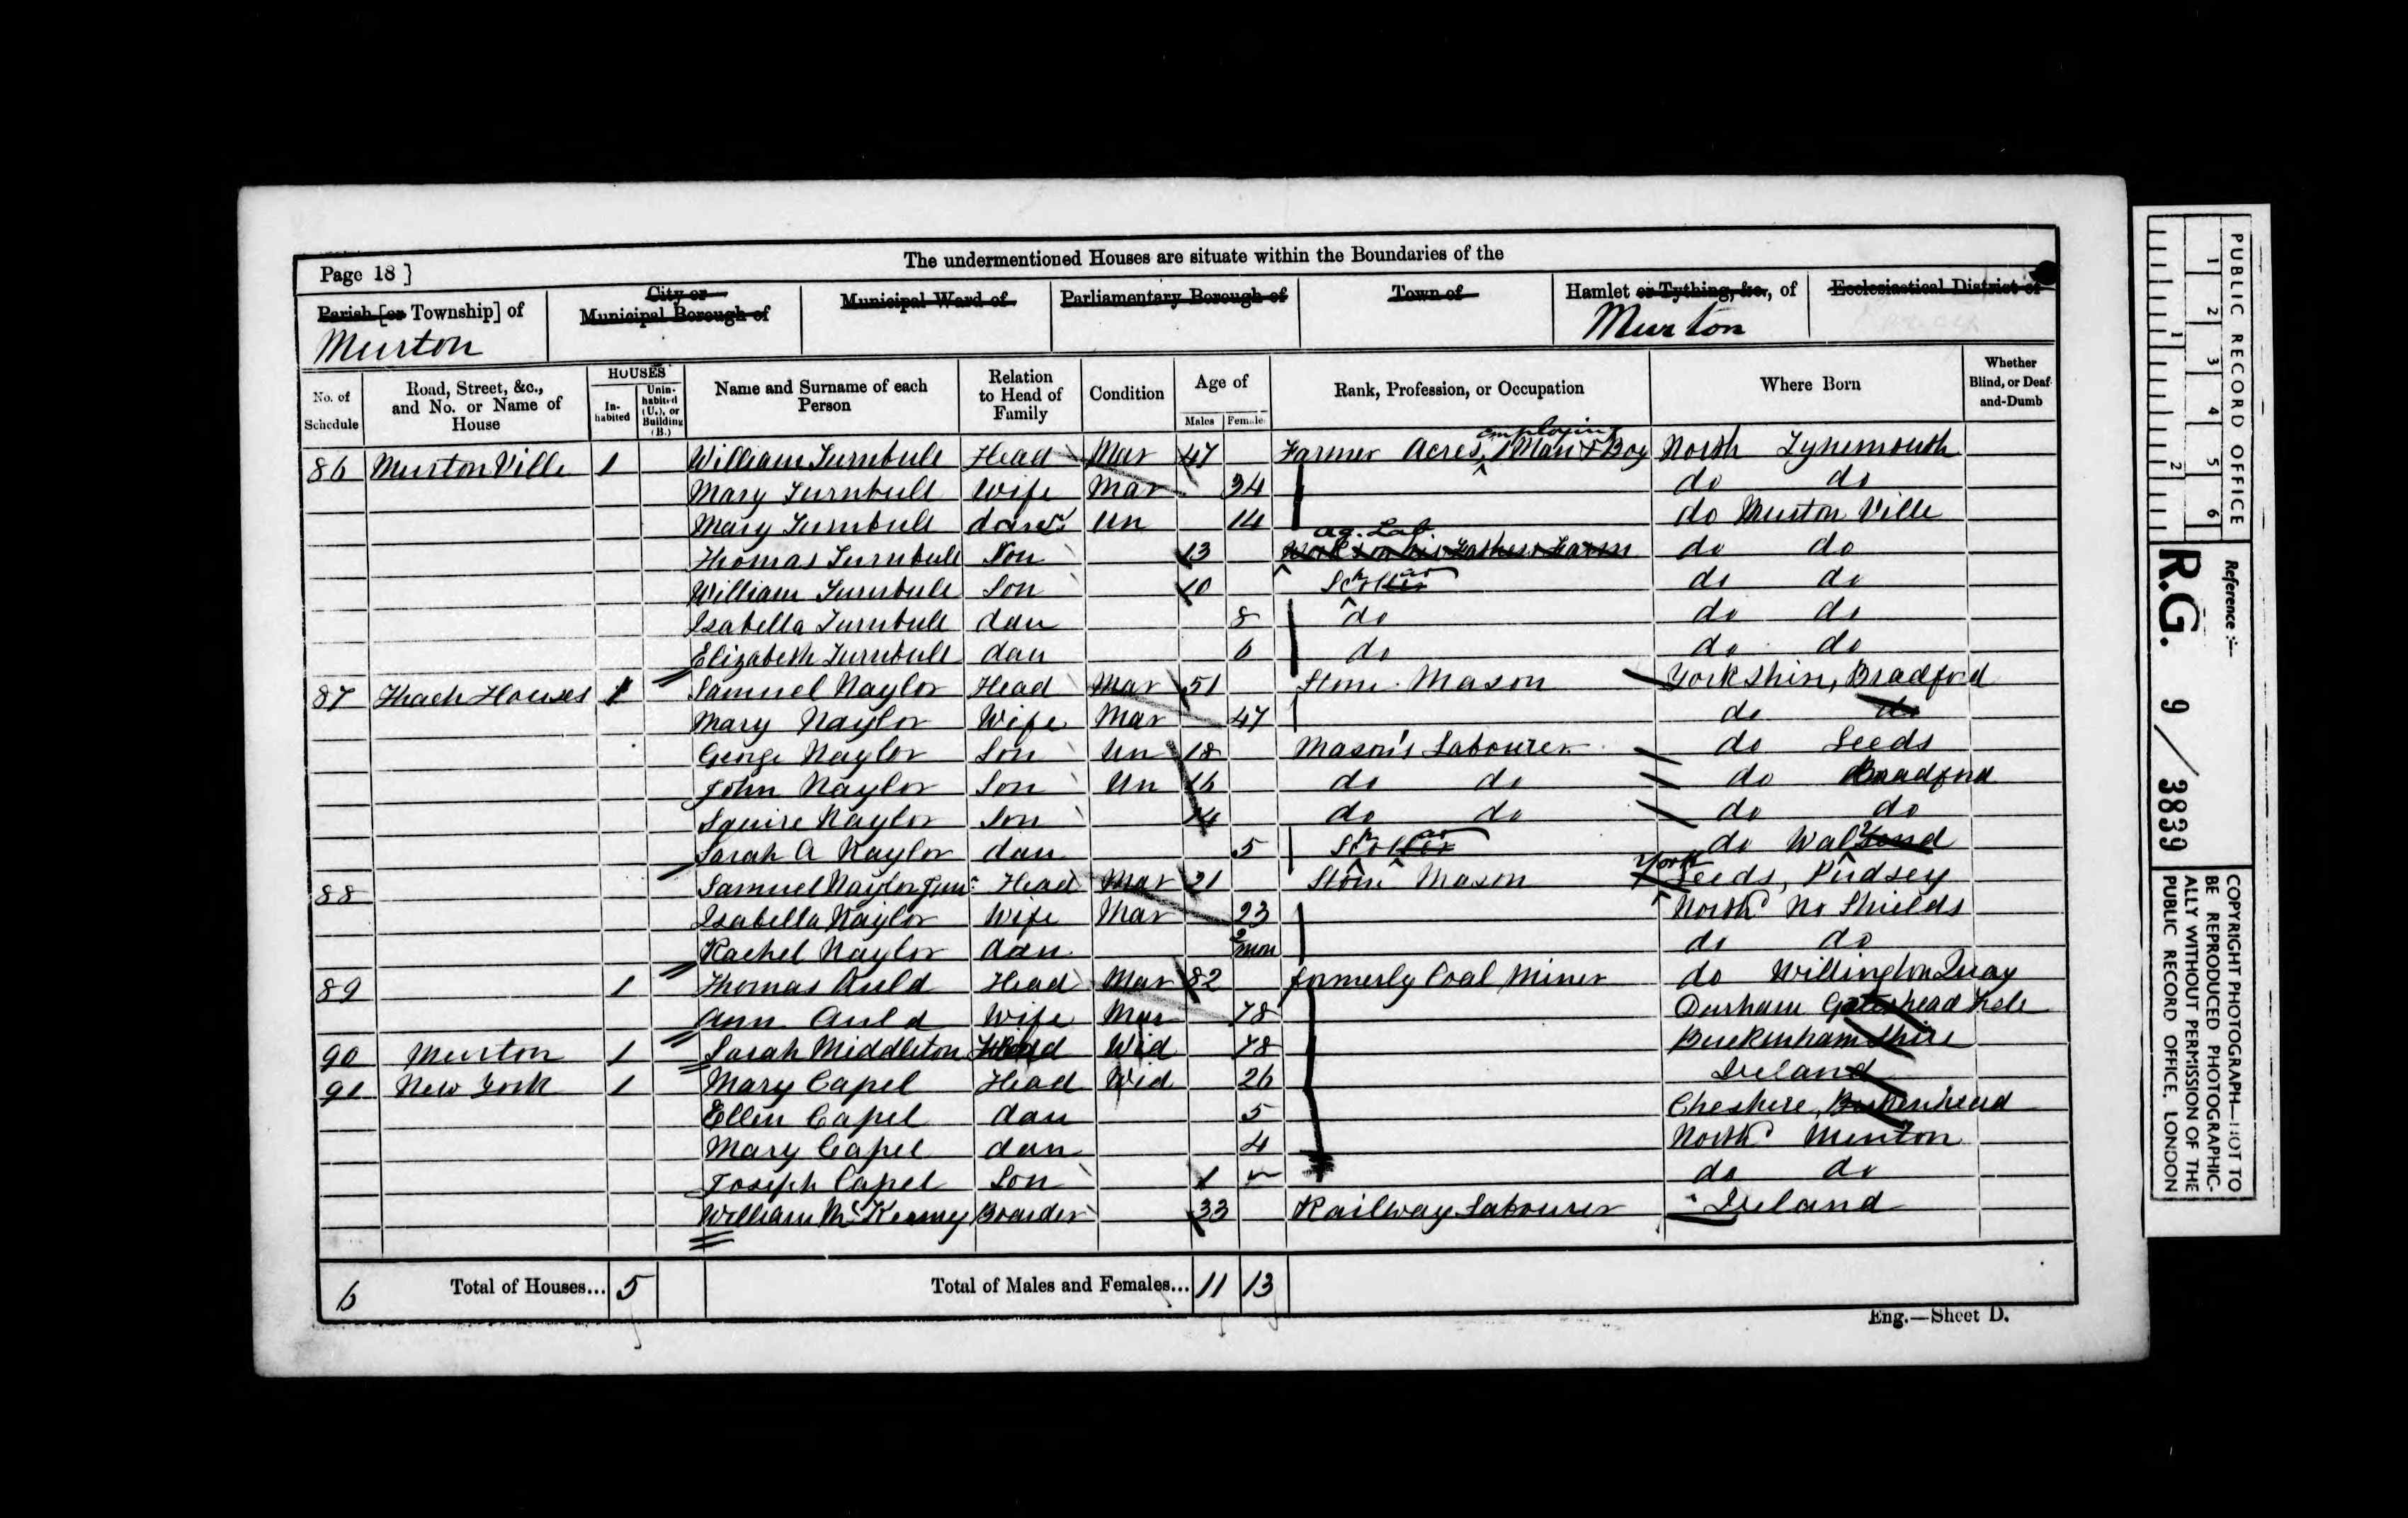 The undermentioned Houses are situate within the Boundaries of the
Page 18 ]
Parish [or Township] of
Murton
City or
Municipal Borough of
Municipal Ward of
Parliamentary Borough of
Town of
Hamlet or Tything, &c., of
Murton
Ecclesiastical District of
No. of Schedule
Road, Street, &c., and No. or Name of House
HOUSES
In-habited
Unin-habited (U.), or Building (B.)
Name and Surname of each Person
Relation to Head of Family
Condition
Age of
Males
Female
Rank, Profession, or Occupation
Where Born
Whether Blind, or Deaf-and-Dumb
employing
86 Murton Ville 1 William Turnbull Head Mar 47 Farmer Acres, 1 Man & Boy North Tynemouth
Mary Turnbull Wife Mar 34 do do
Mary Turnbull Un 14 do Murton Ville
ag. Lab.
Thomas Turnbull Son 13 do do
William Turnbull Son 10 do do
Isabella Turnbull dau 8 do do do
Elizabeth Turnbull dau 6 do do do
87 Houses 1 Samuel Naylor Head Mar 51 Stone Mason Yorkshire, Bradford
Mary Naylor Wife Mar 47 do do
George Naylor Son Un 18 Mason's Labourer do Leeds
John Naylor Son Un 16 do do do Bradford
Squire Naylor Son 14 do do do do
Sarah A Naylor dau 5 do
York
88 Samuel Naylor Junr Head Mar 21 Stone Mason Leeds, Pudsey
Isabella Naylor Wife Mar 23 North No Shields
Rachel Naylor dau 2 mon do do
89 1 Thomas Auld Head Mar 82 formerly Coal Miner do Willington Quay
Ann Auld Wife Mar 78 Durham Gateshead
90 Murton 1 Sarah Middleton Head Wid 78 Buckinhamshire
91 New York 1 Mary Capel Head Wid 26 Ireland
Ellen Capel dau 5 Cheshire, Birkenhead
Mary Capel dau 4 North Murton
Joseph Capel Son 1 do do
William Boarder 33 Railway Labourer Ireland
6 Total of Houses... 5 Total of Males and Females... 11 13
Eng.—Sheet D.
PUBLIC RECORD OFFICE
1 2 3 4 5 6
1 2
Reference :—
R.G. 9 / 3839
COPYRIGHT PHOTOGRAPH—NOT TO
BE REPRODUCED PHOTOGRAPHIC-
ALLY WITHOUT PERMISSION OF THE
PUBLIC RECORD OFFICE, LONDON